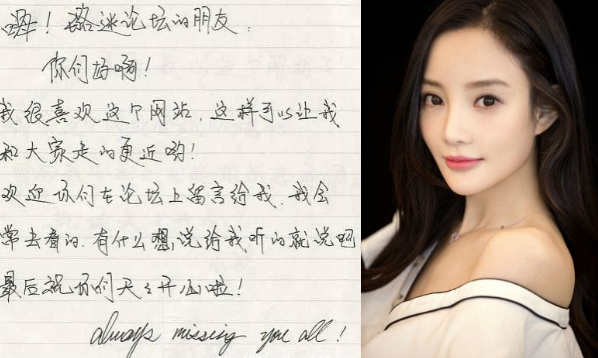 嗨！路迷论坛的朋友，
你们好啊！
我很喜欢这个网站，这样可以让我
和大家走的更近哟！
欢迎你们在论坛上留言给我，我会
常去看的，有什么想说给我听的就说吧
最后祝你们天天开心啦！
always missing you all！